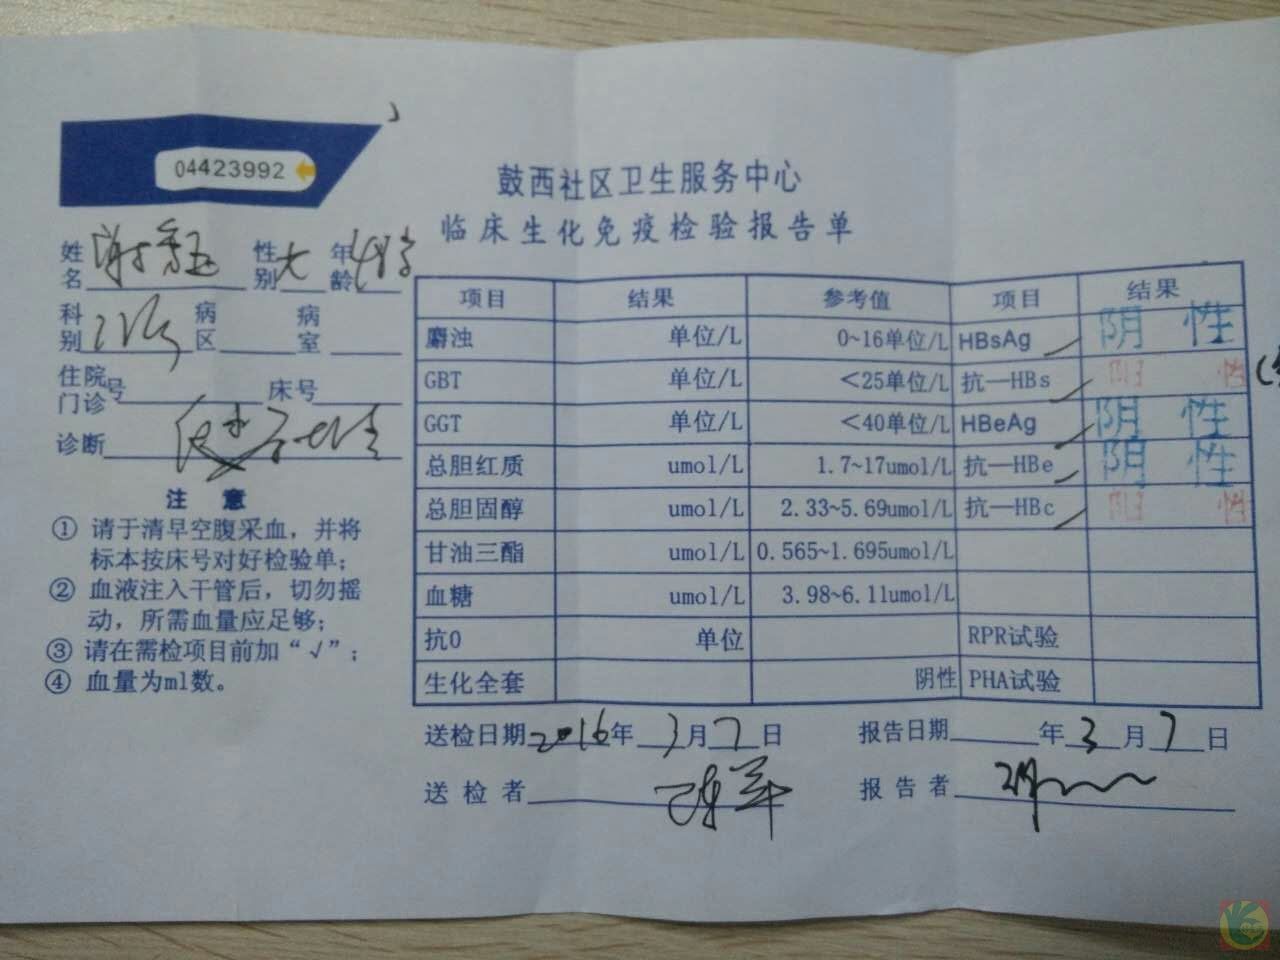 04423992
鼓西社区卫生服务中心
临床生化免疫检验报告单
姓名 性别 女 年龄 48岁
科别 病区 病室
住院门诊号 床号
诊断
注 意
① 请于清早空腹采血，并将
标本按床号对好检验单；
② 血液注入干管后，切勿摇
动，所需血量应足够；
③ 请在需检项目前加“√”；
④ 血量为ml数。
项目 结果 参考值 项目 结果
麝浊 单位/L 0~16单位/L HBsAg 阴性
GBT 单位/L <25单位/L 抗—HBs 阳性
GGT 单位/L <40单位/L HBeAg 阴性
总胆红质 umol/L 1.7~17umol/L 抗—HBe 阴性
总胆固醇 umol/L 2.33~5.69umol/L 抗—HBc 阳性
甘油三酯 umol/L 0.565~1.695umol/L
血糖 umol/L 3.98~6.11umol/L
抗O 单位 RPR试验
生化全套 阴性 PHA试验
送检日期 2016年 3月 7日 报告日期 年 3月 7日
送检者 报告者